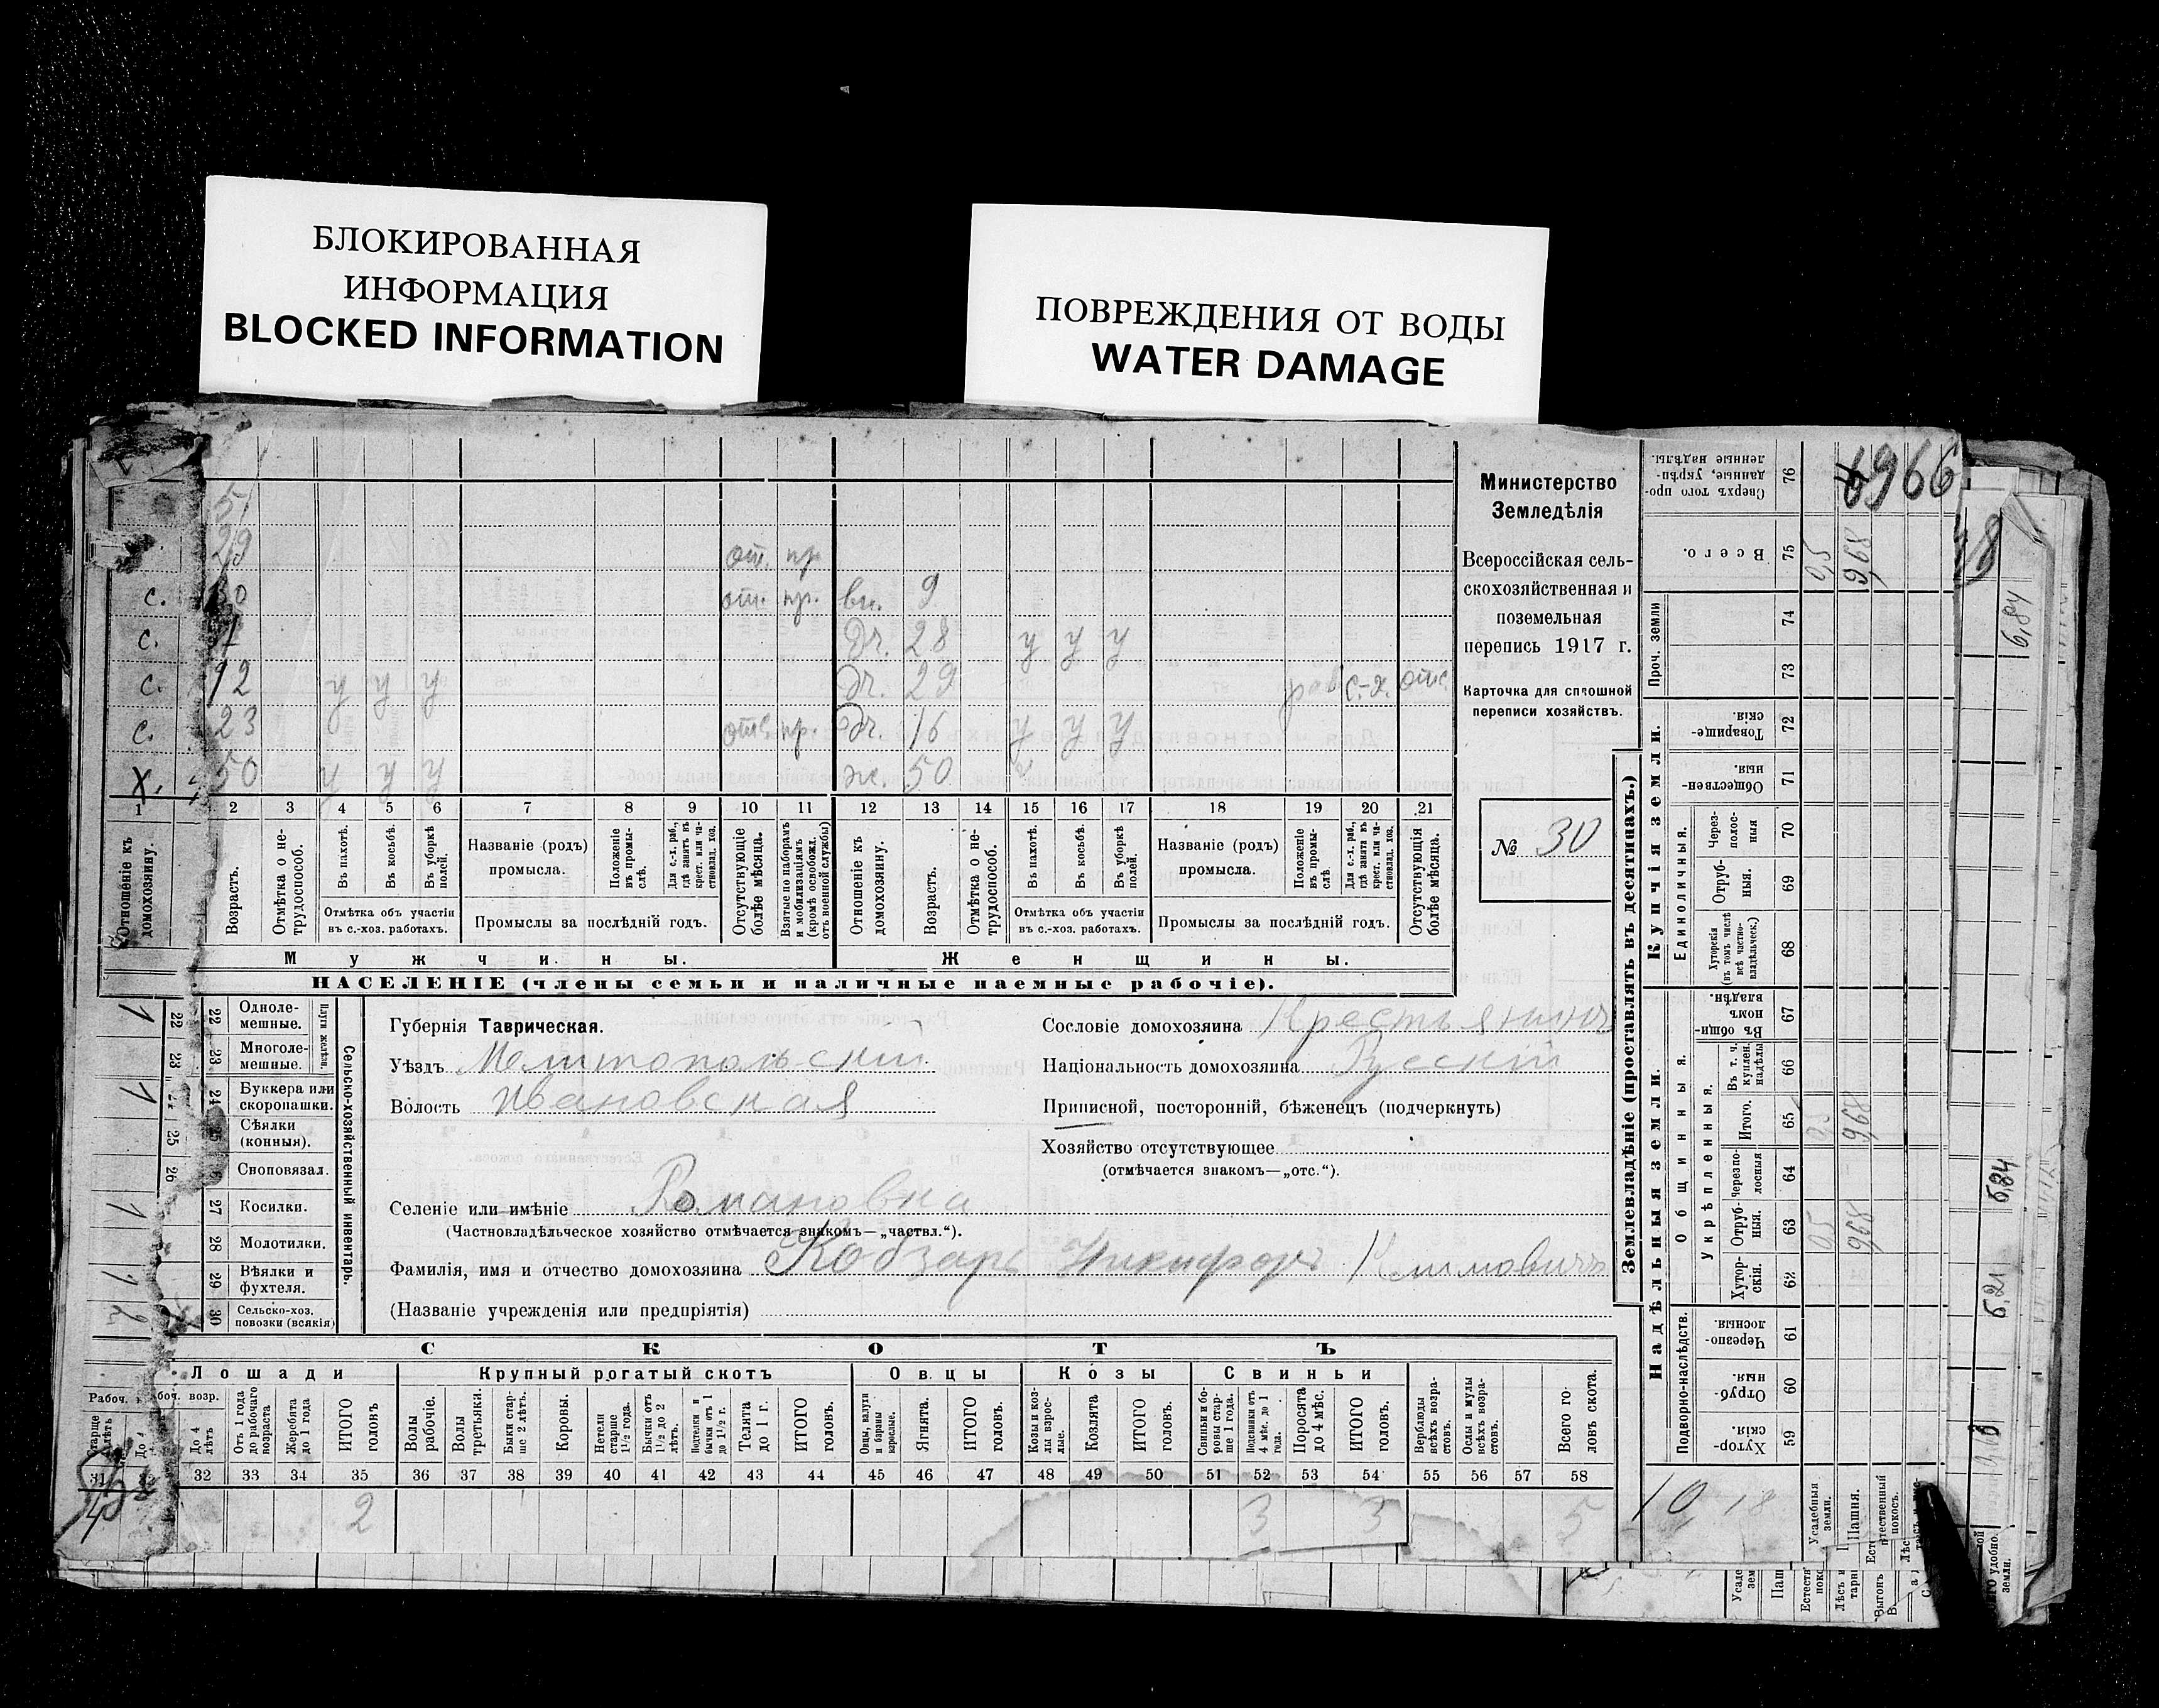 БЛОКИРОВАННАЯ
ИНФОРМАЦИЯ
BLOCKED INFORMATION
ПОВРЕЖДЕНИЯ ОТ ВОДЫ
WATER DAMAGE
5
29 от. пр
с. от. пр. вн. 9
с. Дч. 28 у у у
с. 12 у у у Дч. 29 раб с.-х. отс.
с. 23 отс. пр. Дч. 16 у у у
х. 50 у у у ж. 50
1 2 3 4 5 6 7 8 9 10 11 12 13 14 15 16 17 18 19 20 21
Отношеніе къ домохозяину.
Возрастъ.
Отмѣтка о не-трудоспособ.
Въ пахотѣ.
Въ косьбѣ.
Въ уборкѣ полей.
Отмѣтка объ участіи
въ с.-хоз. работахъ.
Названіе (родъ)
промысла.
Положеніе въ промы-слѣ.
Для с.-х. раб., гдѣ занятъ въ крест. или ча-стновлад. хоз.
Промыслы за послѣдній годъ.
Отсутствующіе болѣе мѣсяца.
Взятые по наборамъ и мобилизаціямъ (кромѣ освобожд. отъ военной службы)
Отношеніе къ домохозяину.
Возрастъ.
Отмѣтка о не-трудоспособ.
Въ пахотѣ.
Въ косьбѣ.
Въ уборкѣ полей.
Отмѣтка объ участіи
въ с.-хоз. работахъ.
Названіе (родъ)
промысла.
Положеніе въ промы-слѣ.
Для с.-х. раб., гдѣ занята въ крест. или ча-стновлад. хоз.
Промыслы за послѣдній годъ.
Отсутствующія болѣе мѣсяца.
Мужчины. Женщины.
НАСЕЛЕНІЕ (члены семьи и наличные наемные рабочіе).
Министерство
Земледѣлія
Всероссійская сель-
скохозяйственная и
поземельная
перепись 1917 г.
Карточка для сплошной
переписи хозяйствъ.
№ 30
22 Одноле-мешные.
23 Многоле-мешные.
Плуги желѣзн.
24 Буккера или скоропашки.
25 Сѣялки (конныя).
26 Сноповязал.
27 Косилки.
28 Молотилки.
29 Вѣялки и фухтеля.
30 Сельско-хоз. повозки (всякія)
Сельско-хозяйственный инвентарь.
Губернія Таврическая.
Уѣздъ Мелитопольскій
Волость Ивановская
Селеніе или имѣніе Романовка
(Частновладѣльческое хозяйство отмѣчается знакомъ—„частвл.“).
Фамилія, имя и отчество домохозяина Кобзарь Никифоръ Климовичъ
(Названіе учрежденія или предпріятія)
Сословіе домохозяина Крестьянинъ
Національность домохозяина Русскій
Приписной, посторонній, бѣженецъ (подчеркнуть)
Хозяйство отсутствующее
(отмѣчается знакомъ—„отс.“).
СКОТЪ
Лошади Крупный рогатый скотъ Овцы Козы Свиньи
До 4 лѣтъ
Отъ 1 года до рабочаго возраста
Жеребята до 1 года
ИТОГО головъ
Волы рабочіе.
Волы третьяки.
Быки стар-ше 2 лѣтъ.
Коровы.
Нетели старше 1½ года.
Бычки отъ 1½ до 2 лѣтъ.
Подтелки и бычки отъ 1 до 1½ г.
Телята до 1 г.
ИТОГО головъ.
Овцы, валухи и бараны взрослые.
Ягнята.
ИТОГО головъ.
Козы и коз-лы взрос-лые.
Козлята
ИТОГО головъ.
Свиньи и бо-ровы стар-ше 1 года.
Подсвинки отъ 4 мѣс. до 1 года.
Поросята до 4 мѣс.
ИТОГО головъ.
Верблюды всѣхъ возра-стовъ.
Ослы и мулы всѣхъ возра-стовъ.
Всего го-ловъ скота.
31 32 33 34 35 36 37 38 39 40 41 42 43 44 45 46 47 48 49 50 51 52 53 54 55 56 57 58
2 3 3 5
Землевладѣніе (проставлять въ десятинахъ.)
Надѣльныя земли. Купчія земли. Проч. земли
Подворно-наслѣдств.
Общинныя.
Укрѣпленныя.
Единоличныя.
Хутор-скія. 59
Отруб-ныя. 60
Черезпо-лосныя 61
Хутор-скія. 62
Отруб-ныя. 63 0,5 9,68
Черезпо-лосныя 64
Итого. 65 0,5 9,68
Въ т. ч. куплен. надѣлы 66
Въ общин-номъ владѣн. 67
Хуторскія (въ томъ числѣ всѣ частно-владѣльческ.) 68
Отруб-ныя. 69
Через-полос-ныя 70
Обществен-ныя 71
Товарище-скія. 72
73
74
Всего. 75 0,5 9,68
Сверхъ того про-данные, укрѣп-ленные надѣлы. 76
6966
10 18
Усадебныя земли.
Пашня.
Естественный покосъ.
6,84
5,84
5,21